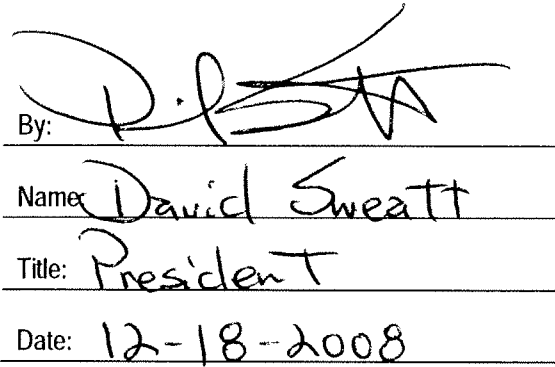 By:
Name: David Sweatt
Title: President
Date: 12-18-2008